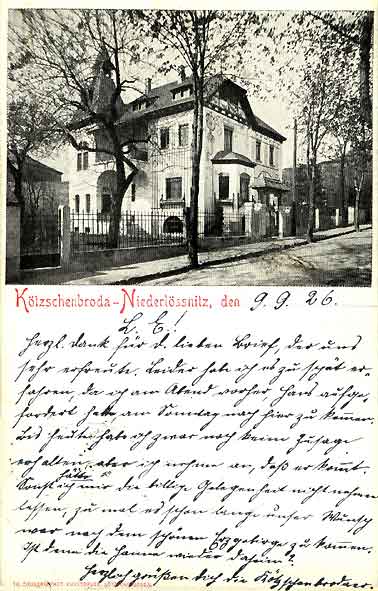 Kötzschenbroda-Niederlössnitz, den 9.9.26.
L. E.!
Herzl. Dank für d. lieben Brief, der uns
sehr erfreute. Leider habe ich es zu spät er-
fahren, da ich am Abend vorher Hans aufge-
fordert hatte am Sonntag nach hier zu kommen.
Bis heute habe ich zwar noch keine Zusage
erhalten, aber ich nehme an, daß er kommt.
Sonst hätte ich mir die billige Gelegenheit nicht nehmen
lassen, zumal es schon lange unser Wunsch
war nach dem schönen Erzgebirge zu kommen.
Ist denn die Hanne wieder daheim?
Herzlich grüßen Dich die Kötzschenbrodaer.